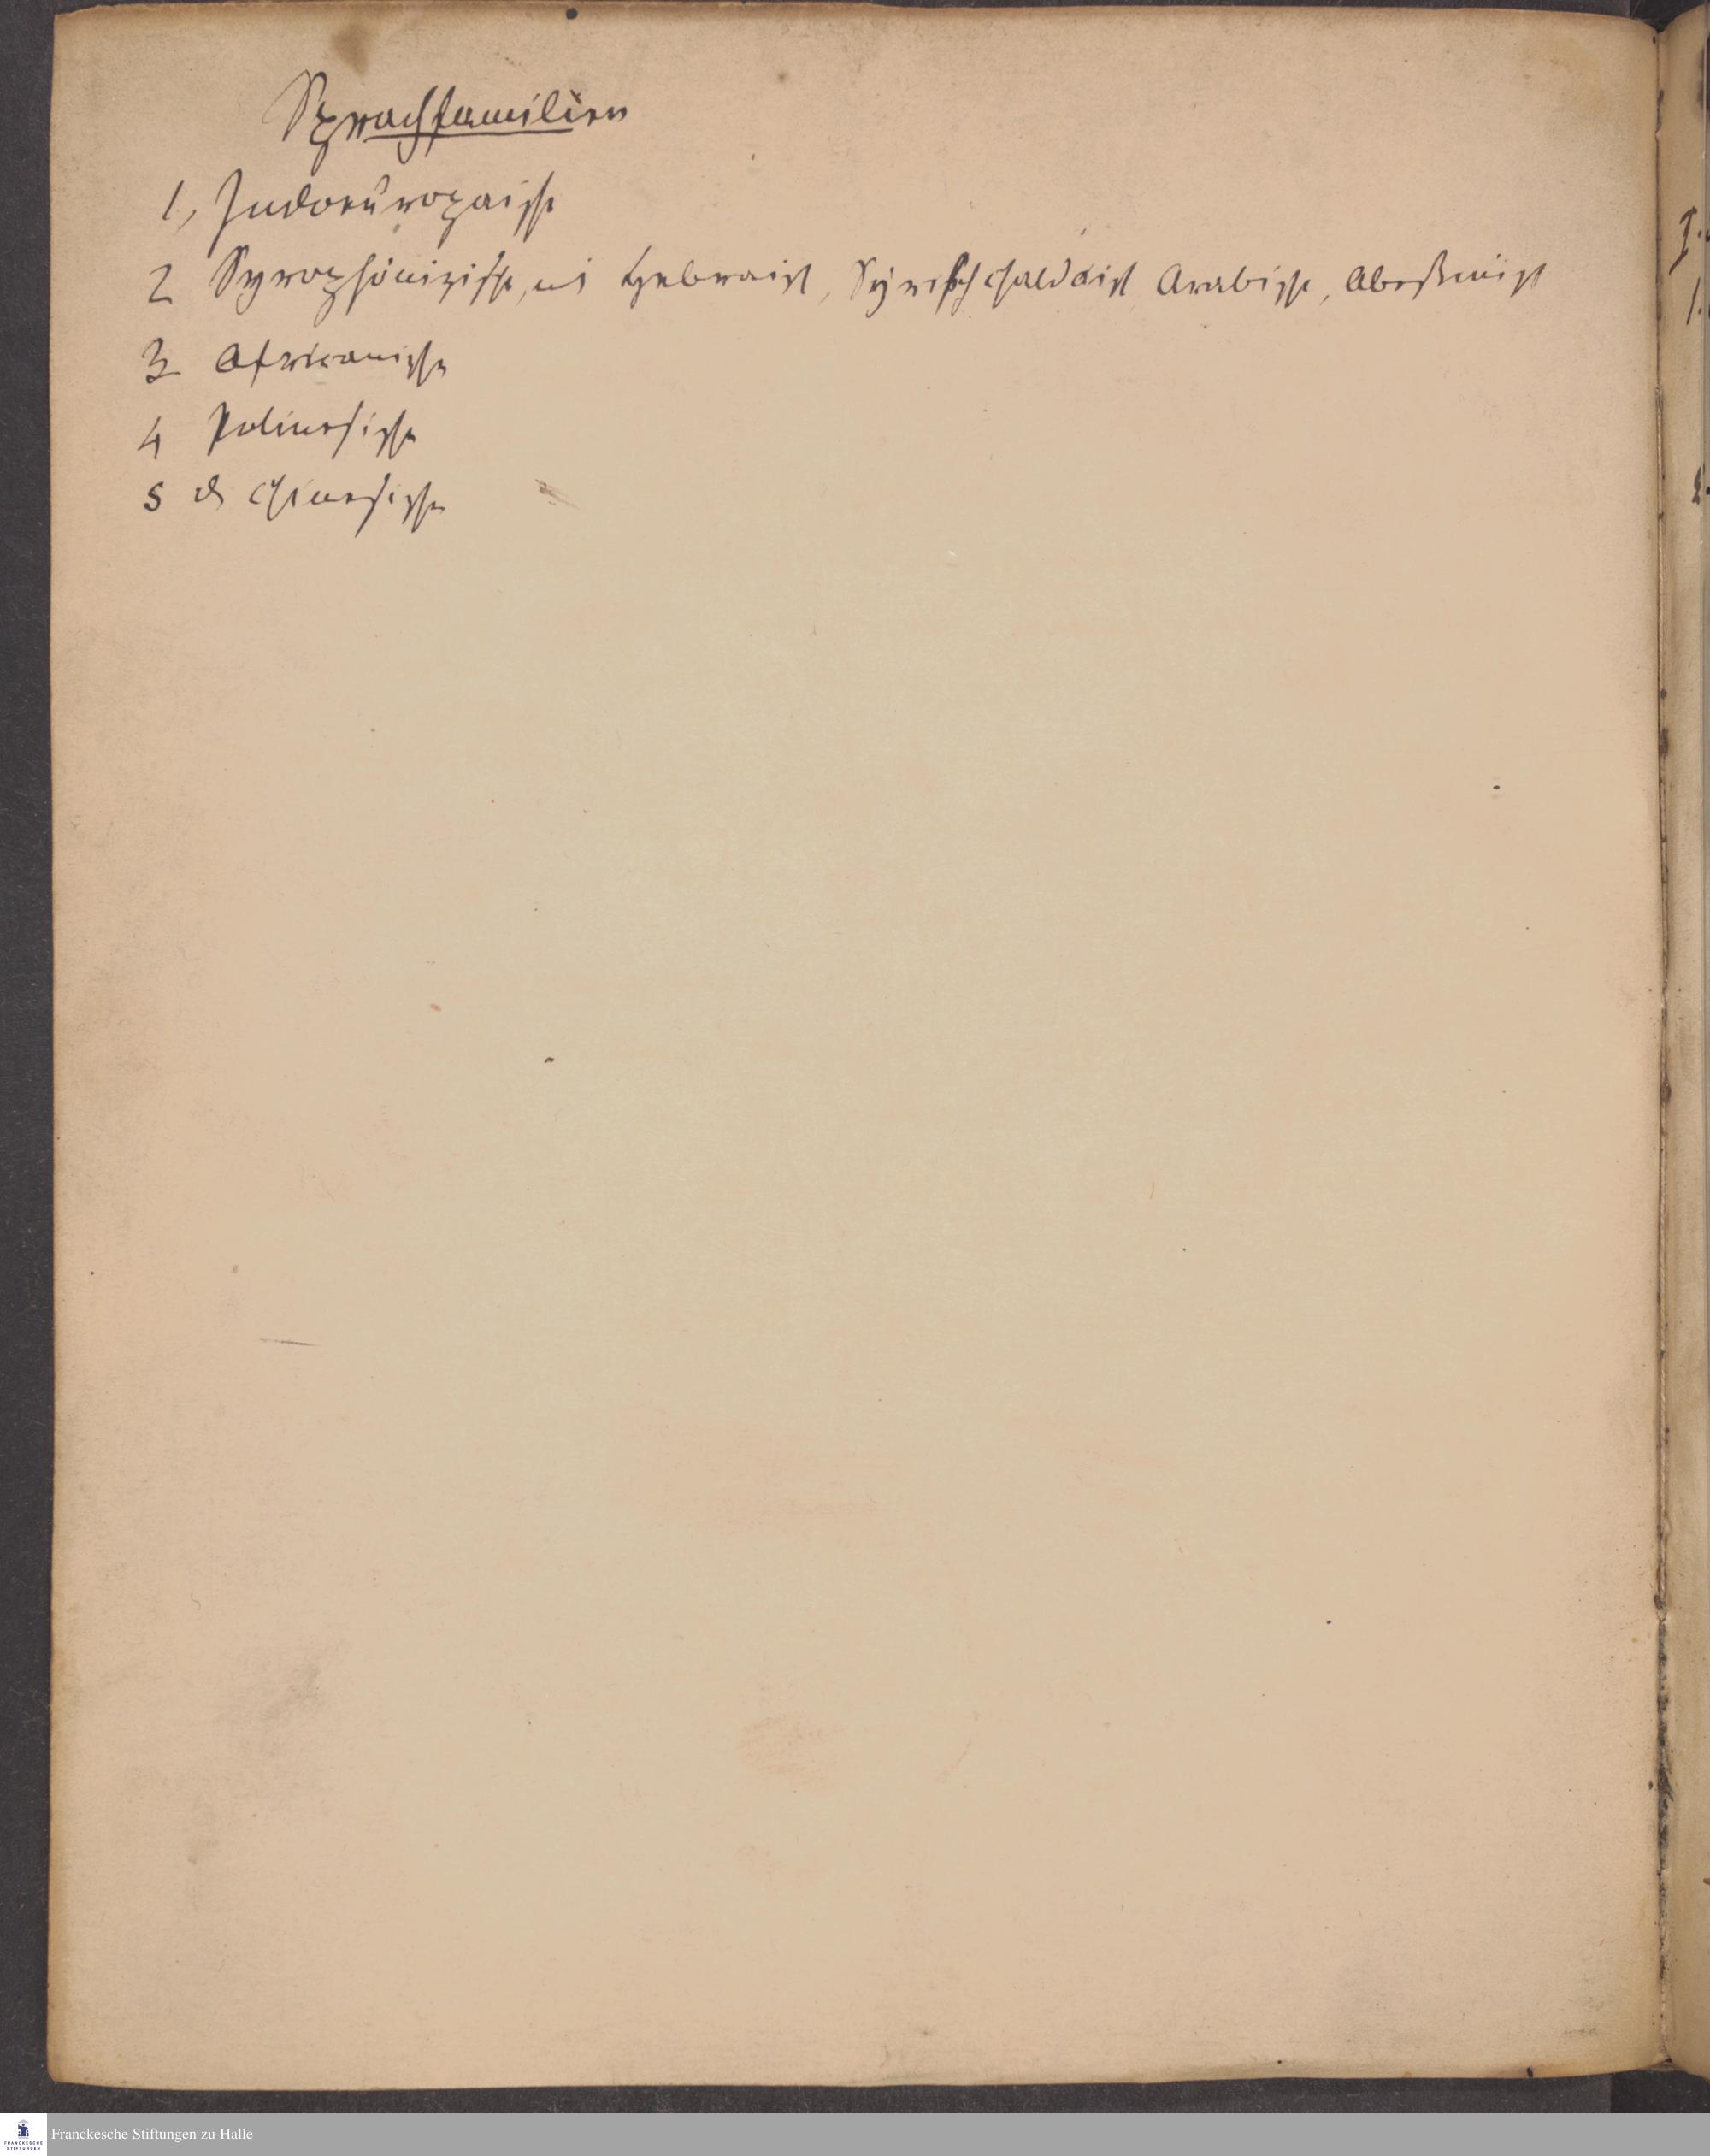 Sprachfamilien
1, Indoeuropaische
2 Syrophönizische, als Hebraisch, Syrischchaldäisch Arabische, Abeßinisch
3 Africanische
4 Polinesische
5 d Chinesische
I.
1.
2.
Franckesche Stiftungen zu Halle
FRANCKESCHE
STIFTUNGEN